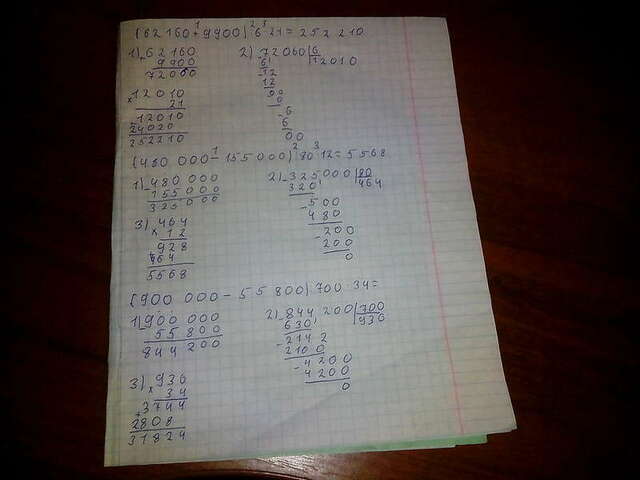 (62160+9900):6·21=252210
1) 62160
+ 9900
72060
2) 72060 | 6
6 | 12010
-12
12
00
0
-6
6
00
×12010
21
12010
24020
252210
(480 000 - 155 000):80·12=5568
1) -480000
155000
325000
2) -325000 | 80
320 | 464
-500
480
-200
200
0
3) ×464
12
928
464
5568
(900 000 - 55 800):700·34=
1) 900 000
- 55 800
844 200
2) -844 200 | 700
630 | 936
-2142
2100
-4200
4200
0
3) ×936
34
+3744
2808
31824